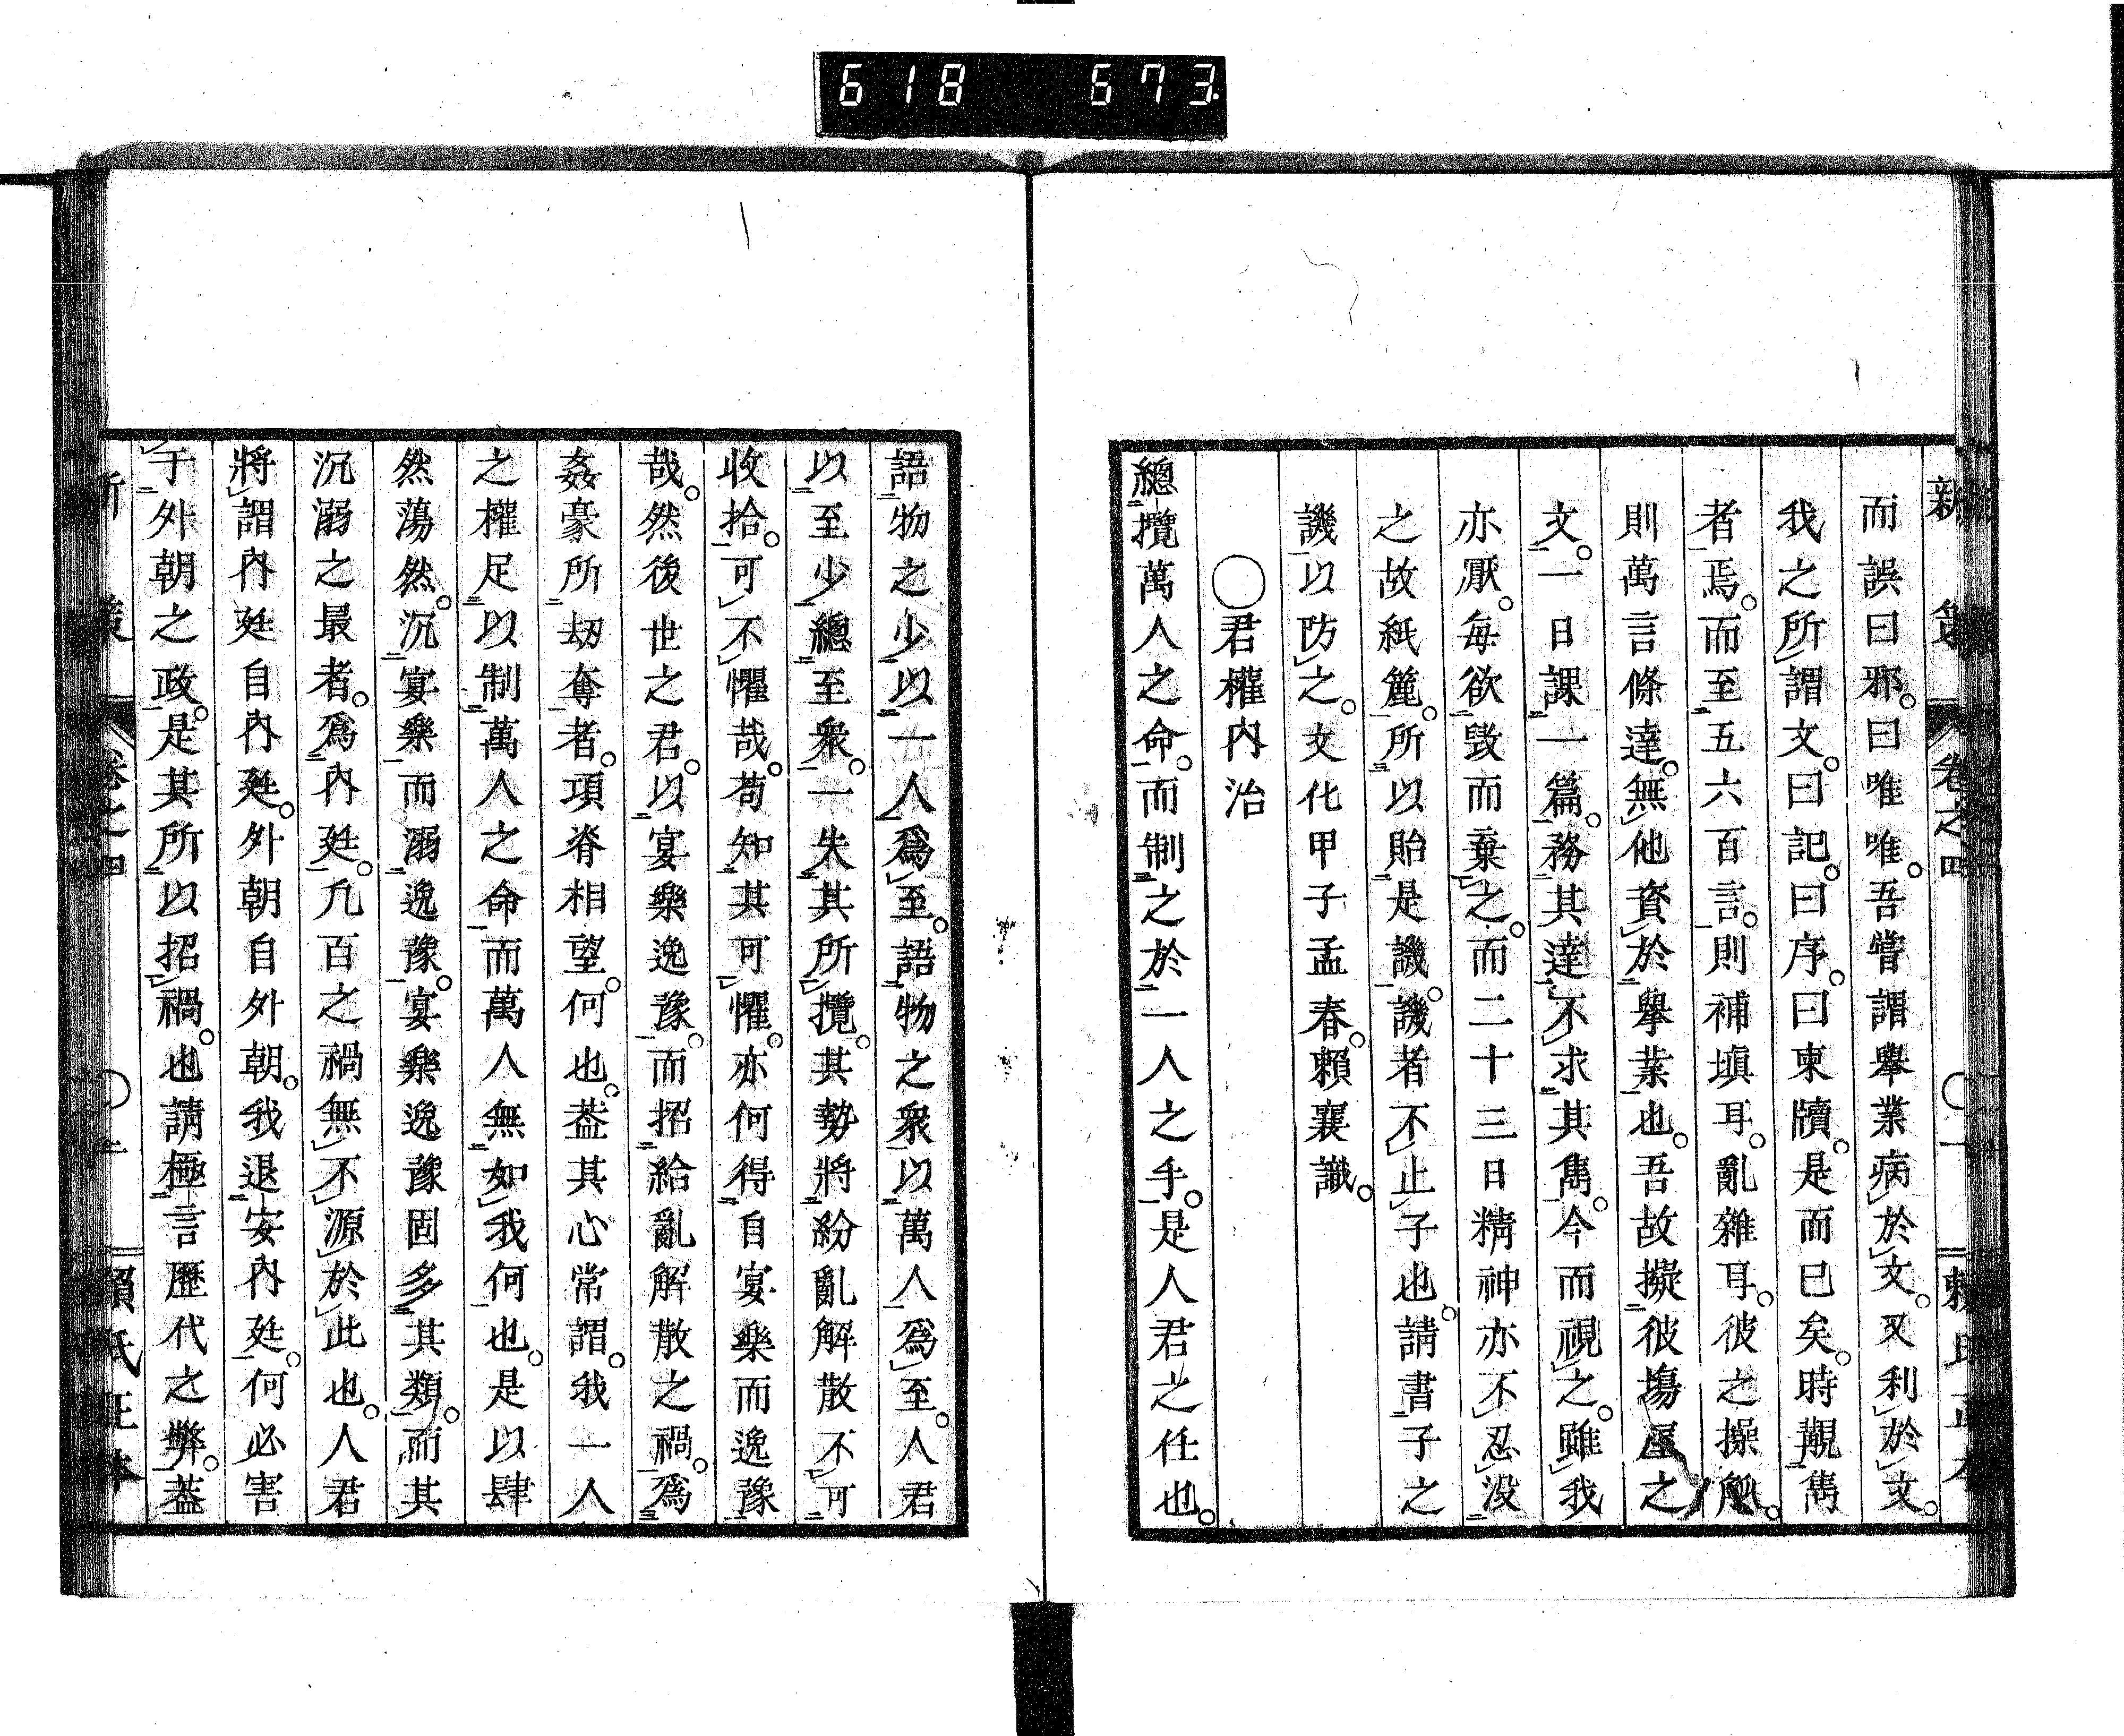 618 673
新策 卷之四 〇一 賴氏正本
而誤曰邪。曰唯唯。吾嘗謂舉業病於文。又利於文。
我之所謂文。曰記。曰序。曰柬牘。是而已矣。時覯雋
者焉。而至五六百言。則補塡耳。亂雜耳。彼之操觚。
則萬言條達。無他資於舉業也。吾故擬彼塲屋之
文。一日課一篇。務其達不求其雋。今而視之。雖我
亦厭。每欲毀而棄之。而二十三日精神亦不忍没
之故紙簏。所以貽是譏。譏者不止子也。請書子之
譏以防之。文化甲子孟春。賴襄識。
〇君權内治
總攬萬人之命。而制之於一人之手。是人君之任也。
語物之少以一人爲至。語物之衆以萬人爲至。人君
以至少總至衆。一失其所攬。其勢將紛亂解散不可
收拾。可不懼哉。苟知其可懼。亦何得自宴樂而逸豫
哉。然後世之君。以宴樂逸豫。而招給亂解散之禍。爲
姦豪所刼奪者。項脊相望。何也。葢其心常謂。我一人
之權足以制萬人之命而萬人無如我何也。是以肆
然蕩然。沉宴樂而溺逸豫。宴樂逸豫固多其類。而其
沉溺之最者。爲内廷。凢百之禍無不源於此也。人君
將謂内廷自内廷。外朝自外朝。我退安内廷。何必害
于外朝之政。是其所以招禍。也請極言歷代之弊。葢
新策 卷之四 〇二 賴氏正本